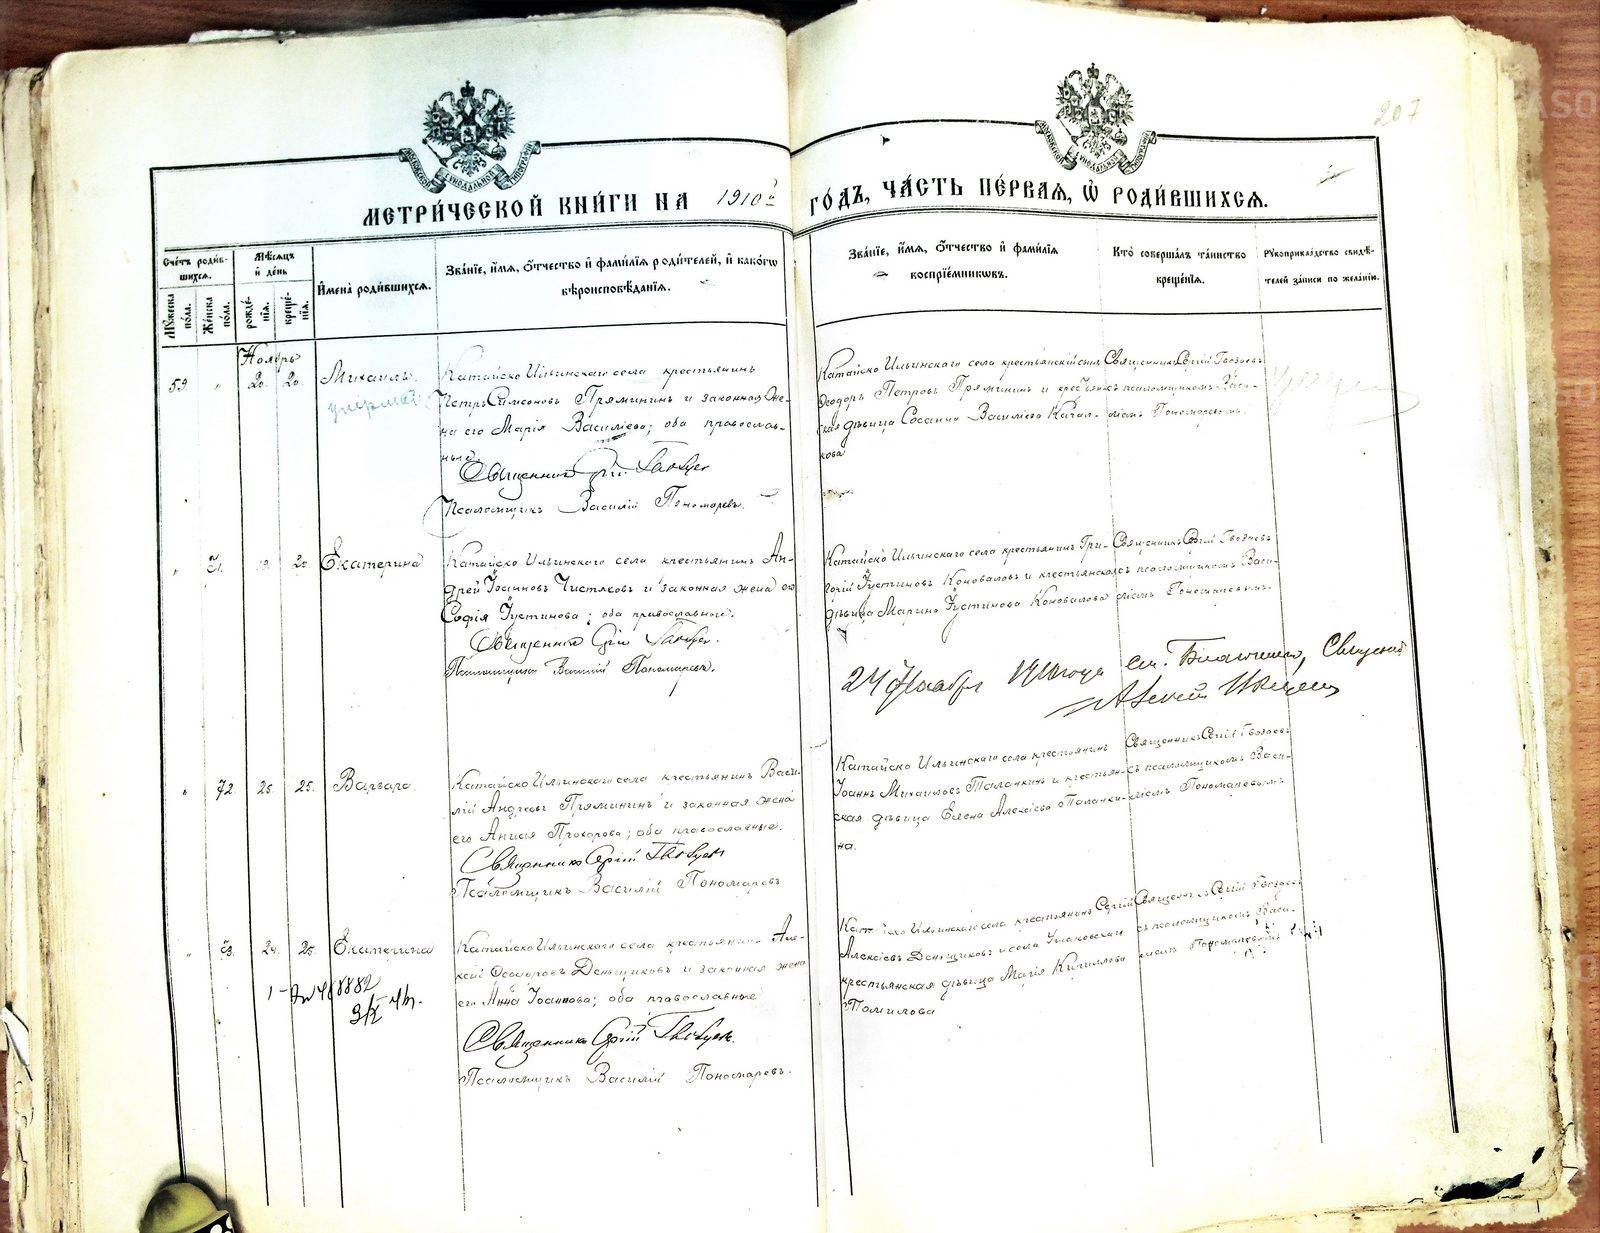 207
МЕТРИ́ЧЕСКОЙ КНИ́ГИ НА 1910й ГО́ДЪ, ЧА́СТЬ ПЕ́РВАЯ, Ѡ РОДИ́ВШИХСЯ.
Сче́тъ роди́вшихся.
Мꙋжеска пола.
Же́нска пола.
Мѣсяцъ и́ де́нь
рожде́нїя.
креще́нїя.
И́мена̀ роди́вшихся.
Зва́нїе, и́мя, ѻ́тчество и́ фами́лїя роди́телей, и́ како́гѡ вѣроисповѣ́данїя.
Зва́нїе, и́мя, ѻ́тчество и́ фами́лїя воспрїе́мникѡвъ.
Кто̀ соверша́лъ та́инство креще́нїя.
Рꙋкоприкла́дство свидѣ́телей за́писи по жела́нїю.
Ноябрь
59 " 20. 20. Михаилъ.
умеръ
Катайско Ильинскаго села крестьянинъ
Петръ Симеоновъ Пряминынъ и законная же-
на его Марія Васильева; оба православ-
ные.
Священникъ Сергій Гвоздевъ
Псаломщикъ Василій Пономаревъ.
Катайско Ильинскаго села крестьянскій сынъ
Ѳеодоръ Петровъ Пряминынъ и крестьян-
ская дѣвица Васильева Качал-
кова
Священникъ Сергій Гвоздевъ
съ псаломщикомъ Васи-
ліемъ Пономаревымъ.
" 71. 19. 20 Екатерина
Катайско Ильинскаго села крестьянинъ Ан-
дрей Іоанновъ Чистяковъ и законная жена его
Софія Іустинова; оба православные.
Священникъ Сергій Гвоздевъ.
Псаломщикъ Василій Пономаревъ.
Катайско Ильинскаго села крестьянинъ Гри-
горій Іустиновъ Коноваловъ и крестьянская
дѣвица Марина Іустинова Коновалова
Священникъ Сергій Гвоздевъ
съ псаломщикомъ Васи-
ліемъ Пономаревымъ.
24 Ноября 1910 года Священник
Алексій
" 72 25. 25. Варвара.
Катайско Ильинскаго села крестьянинъ Васи-
лій Андреевъ Пряминынъ и законная жена
его Анисія Прохорова; оба православные.
Священникъ Сергій Гвоздевъ
Псаломщикъ Василій Пономаревъ
Катайско Ильинскаго села крестьянинъ
Іоаннъ Михаиловъ Паланкинъ и крестьян-
ская дѣвица Елена Алексіева Паланки-
на.
Священникъ Сергій Гвоздевъ
съ псаломщикомъ Васи-
ліемъ Пономаревымъ
" 73. 24. 25. Екатерина
Катайско Ильинскаго села крестьянинъ Але-
ксій Ѳеодоровъ Деньщиковъ и законная жена
его Анна Іоаннова; оба православные
Священникъ Сергій Гвоздевъ.
Псаломщикъ Василій Пономаревъ.
Катайско Ильинскаго села крестьянинъ Сергій
Алексіевъ Деньщиковъ и села
крестьянская дѣвица Марія Кириллова
Томилова
Священникъ Сергій Гвоздевъ
съ псаломщикомъ Васи-
ліемъ Пономаревымъ